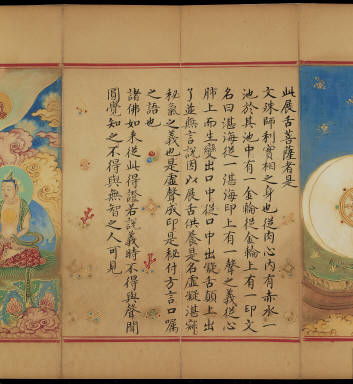 此展舌菩薩者是
文殊師利實相之身也從肉心內有赤水一
池於其池中有一金輪從金輪上有一印文
名曰湛海從一湛海印上有一聲之義從心
肺上而生變出口中從口中出縱舌顛上出
了並無言說因以展舌供養是名虛凝湛寂
秘氣之義也是虛聲成印是秘付方言口囑
之語也
諸佛如來從此得證若說義時不得與聲聞
圓覺知之不得與無智之人可見